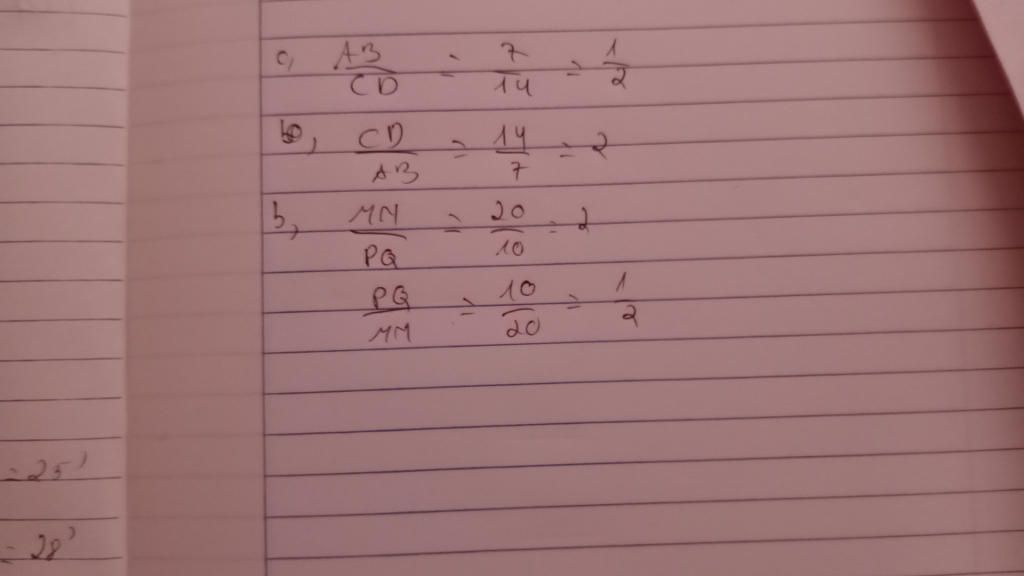 a, AB/CD = 7/14 = 1/2
CD/AB = 14/7 = 2
b, MN/PQ = 20/10 = 2
PQ/MN = 10/20 = 1/2
= 25'
= 28'